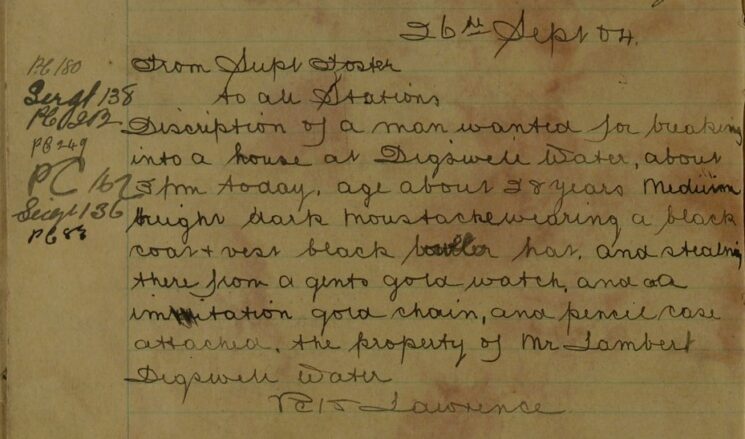 26th Sept 04.
From Supt Foster
to all Stations
PC 180
Sergt 138
PC 212
PC 249
PC 162
Sergt 136
PC 88
Discription of a man wanted for breaking
into a house at Digswell Water, about
3 pm today, age about 28 years Medium
height dark moustache wearing a black
coat & vest black bowler hat, and stealing
there from a gents gold watch, and a
immitation gold chain, and pencil case
attached, the property of Mr Lambert
Digswell Water
Lawrence